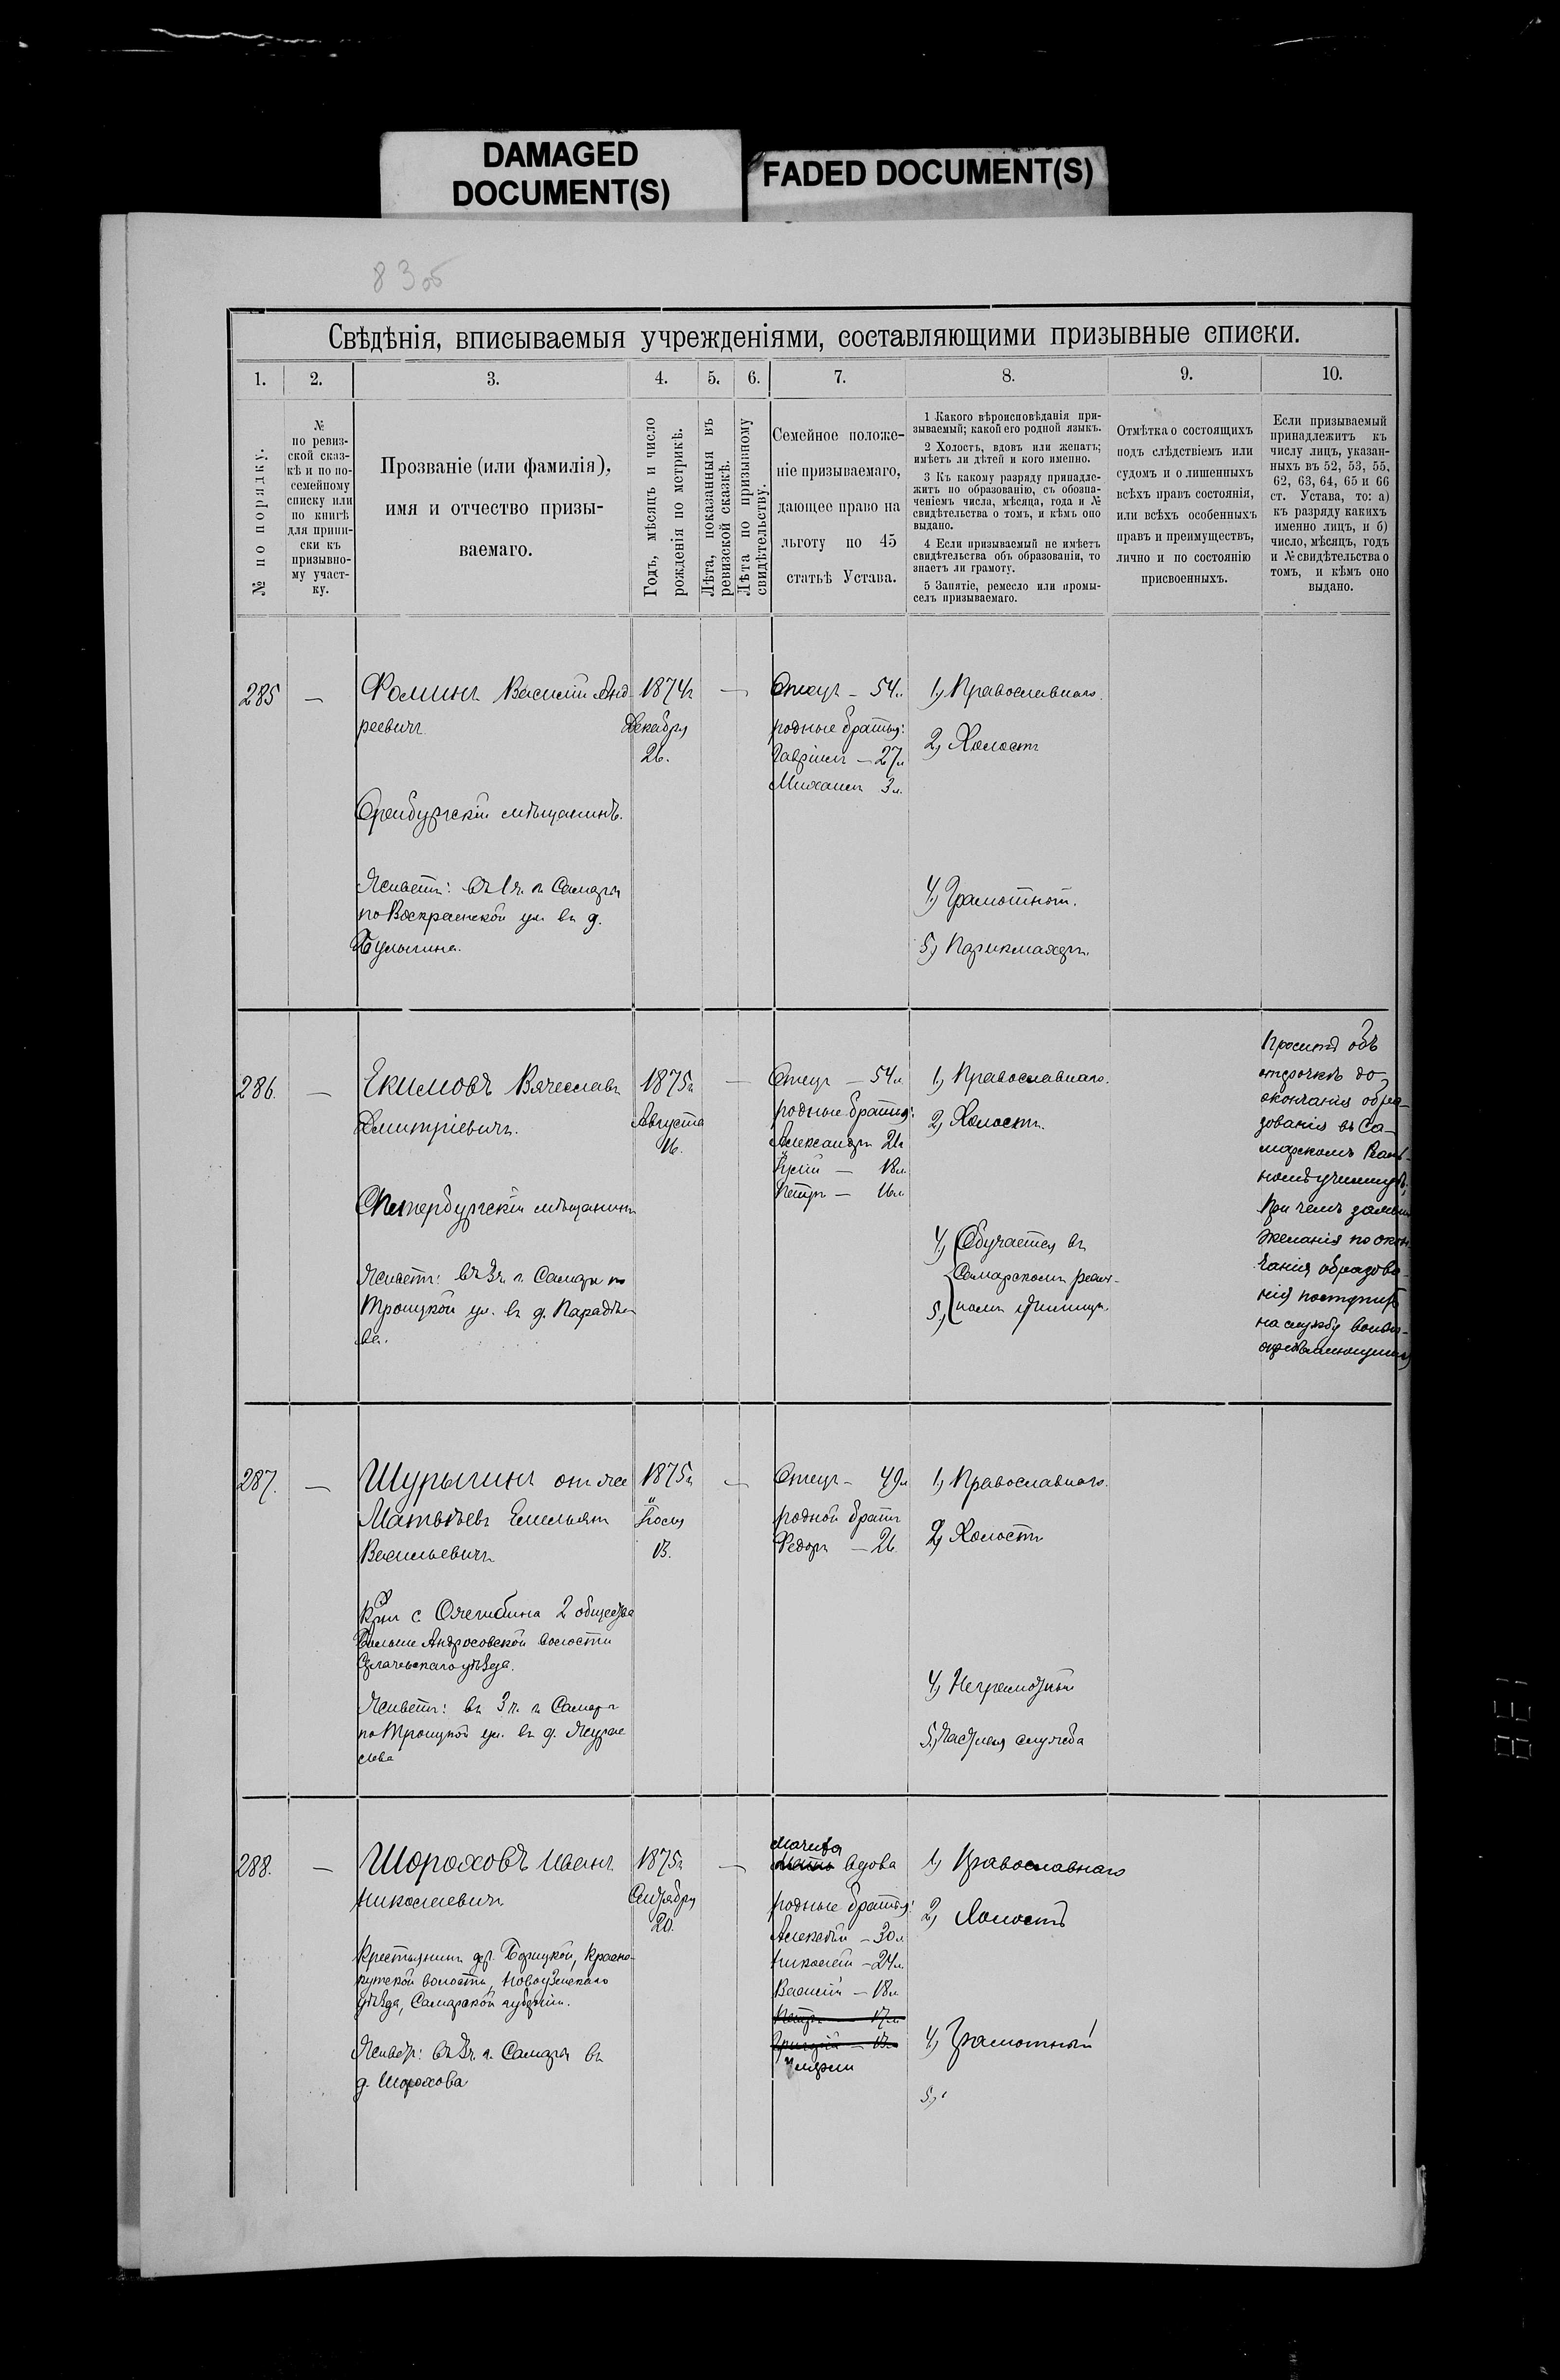 DAMAGED
DOCUMENT(S)
FADED DOCUMENT(S)
83об
Свѣдѣнія, вписываемыя учрежденіями, составляющими призывные списки.
1.
2.
3.
4.
5.
6.
7.
8.
9.
10.
№ по порядку.
№
по ревиз-
ской сказ-
кѣ и по по-
семейному
списку или
по книгѣ
для припи-
ски къ
призывно-
му участ-
ку.
Прозваніе (или фамилія),
имя и отчество призы-
ваемаго.
Годъ, мѣсяцъ и число
рожденія по метрикѣ.
Лѣта, показанныя въ
ревизской сказкѣ.
Лѣта по призывному
свидѣтельству.
Семейное положе-
ніе призываемаго,
дающее право на
льготу по 45
статьѣ Устава.
1 Какого вѣроисповѣданія при-
зываемый; какой его родной языкъ.
2 Холостъ, вдовъ или женатъ;
имѣетъ ли дѣтей и кого именно.
3 Къ какому разряду принадле-
житъ по образованію, съ обозна-
ченіемъ числа, мѣсяца, года и №
свидѣтельства о томъ, и кѣмъ оно
выдано.
4 Если призываемый не имѣетъ
свидѣтельства объ образованіи, то
знаетъ ли грамоту.
5 Занятіе, ремесло или промы-
селъ призываемаго.
Отмѣтка о состоящихъ
подъ слѣдствіемъ или
судомъ и о лишенныхъ
всѣхъ правъ состоянія,
или всѣхъ особенныхъ
правъ и преимуществъ,
лично и по состоянію
присвоенныхъ.
Если призываемый
принадлежитъ къ
числу лицъ, указан-
ныхъ въ 52, 53, 55,
62, 63, 64, 65 и 66
ст. Устава, то: а)
къ разряду какихъ
именно лицъ, и б)
число, мѣсяцъ, годъ
и № свидѣтельства о
томъ, и кѣмъ оно
выдано.
285
—
Фоминъ Василій Анд
реевичъ
Оренбургскій мѣщанинъ.
Живетъ: въ 1 ч. г. Самары
по Воскресенской ул. въ д.
1874г
Декабря
26.
—
Отецъ – 54л.
родные братья:
Гавріилъ – 27л
Михаилъ 3л.
1, Православнаго.
2, Холостъ
4, Грамотный.
5, Парикмахеръ.
286.
—
Екимовъ Вячеславъ
Дмитріевичъ.
СПетербургскій мѣщанинъ
Живетъ: въ 3ч. г. Самары по
Троицкой ул. въ д.
ва.
1875г
Августа
16.
—
Отецъ – 54л
родные братья:
Александръ 21г
Юлій – 18л.
Петръ – 16л
1, Православнаго.
2, Холостъ.
4, Обучается въ
Самарскомъ реаль-
5, номъ училищѣ.
Проситъ объ
отсрочкѣ до
окончанія обра-
зованія въ Са-
марскомъ Реаль-
номъ училищѣ,
При чемъ
желаніе по окон-
чаніи образова-
нія поступить
на службу вольно-
опредѣляющимся
287.
—
Шурыгинъ онъ же
Матвѣевъ Емельянъ
Васильевичъ
Крн с. 2 общества
Андросовской волости
уѣзда.
Живетъ: въ 3 ч. г. Самары
по Троицкой ул. въ д.
лева
1875г
Іюля
13.
—
Отецъ – 49л
родной братъ
Федоръ – 26
1, Православнаго.
2, Холостъ
4, Неграмотный
5, Частная служба
288.
—
Шороховъ Иванъ
Николаевичъ
Крестьянинъ дер. Красно-
кутской волости, Новоузенскаго
уѣзда, Самарской губерніи.
Живетъ: въ 3ч. г. Самары въ
д. Шорохова
1875г
Октября
20.
—
Мачиха
Мать вдова
родные братья:
Алексѣй – 30л
Николай – 24л.
Василій – 18л
Петръ – 17л
Григорій – 13л
умерли
1, Православнаго
2, Холостъ
4, Грамотный
5,
138